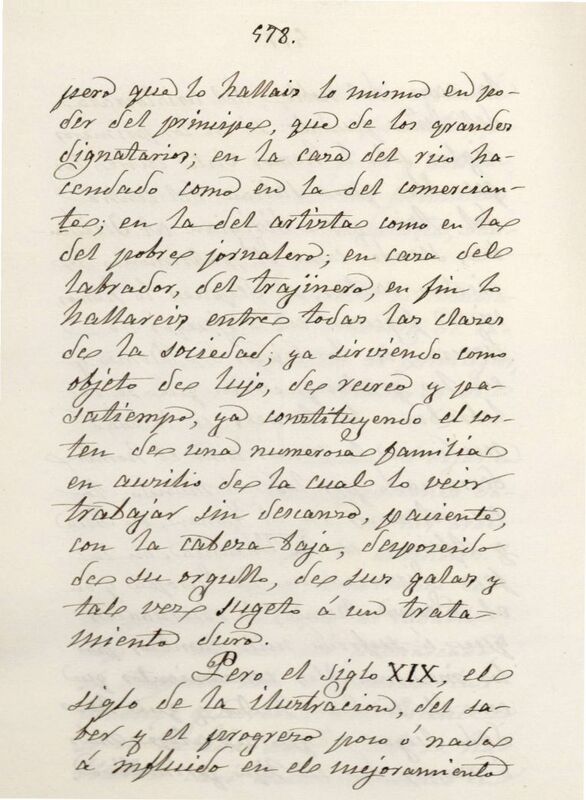 578.
pero que lo hallais lo mismo en po-
der del principe, que de los grandes
dignatarios; en la casa del rico ha-
cendado como en la del comercian-
te; en la del artista como en la
del pobre jornalero; en casa del
labrador, del trajinero, en fin lo
hallareis entre todas las clases
de la sociedad; ya sirviendo como
objeto de lujo, de recreo y pa-
satiempo, ya constituyendo el sos-
ten de una numerosa familia
en aucilio de la cual lo veis
trabajar sin descanso, paciente,
con la cabeza baja, desposeido
de su orgullo, de sus galas y
tal vez sugeto á un trata-
miento duro.
Pero el siglo XIX, el
siglo de la ilustracion, del sa-
ber y el progreso poco ó nada
á influido en el mejoramiento